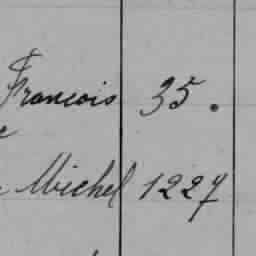 François 35.
Michel 1227